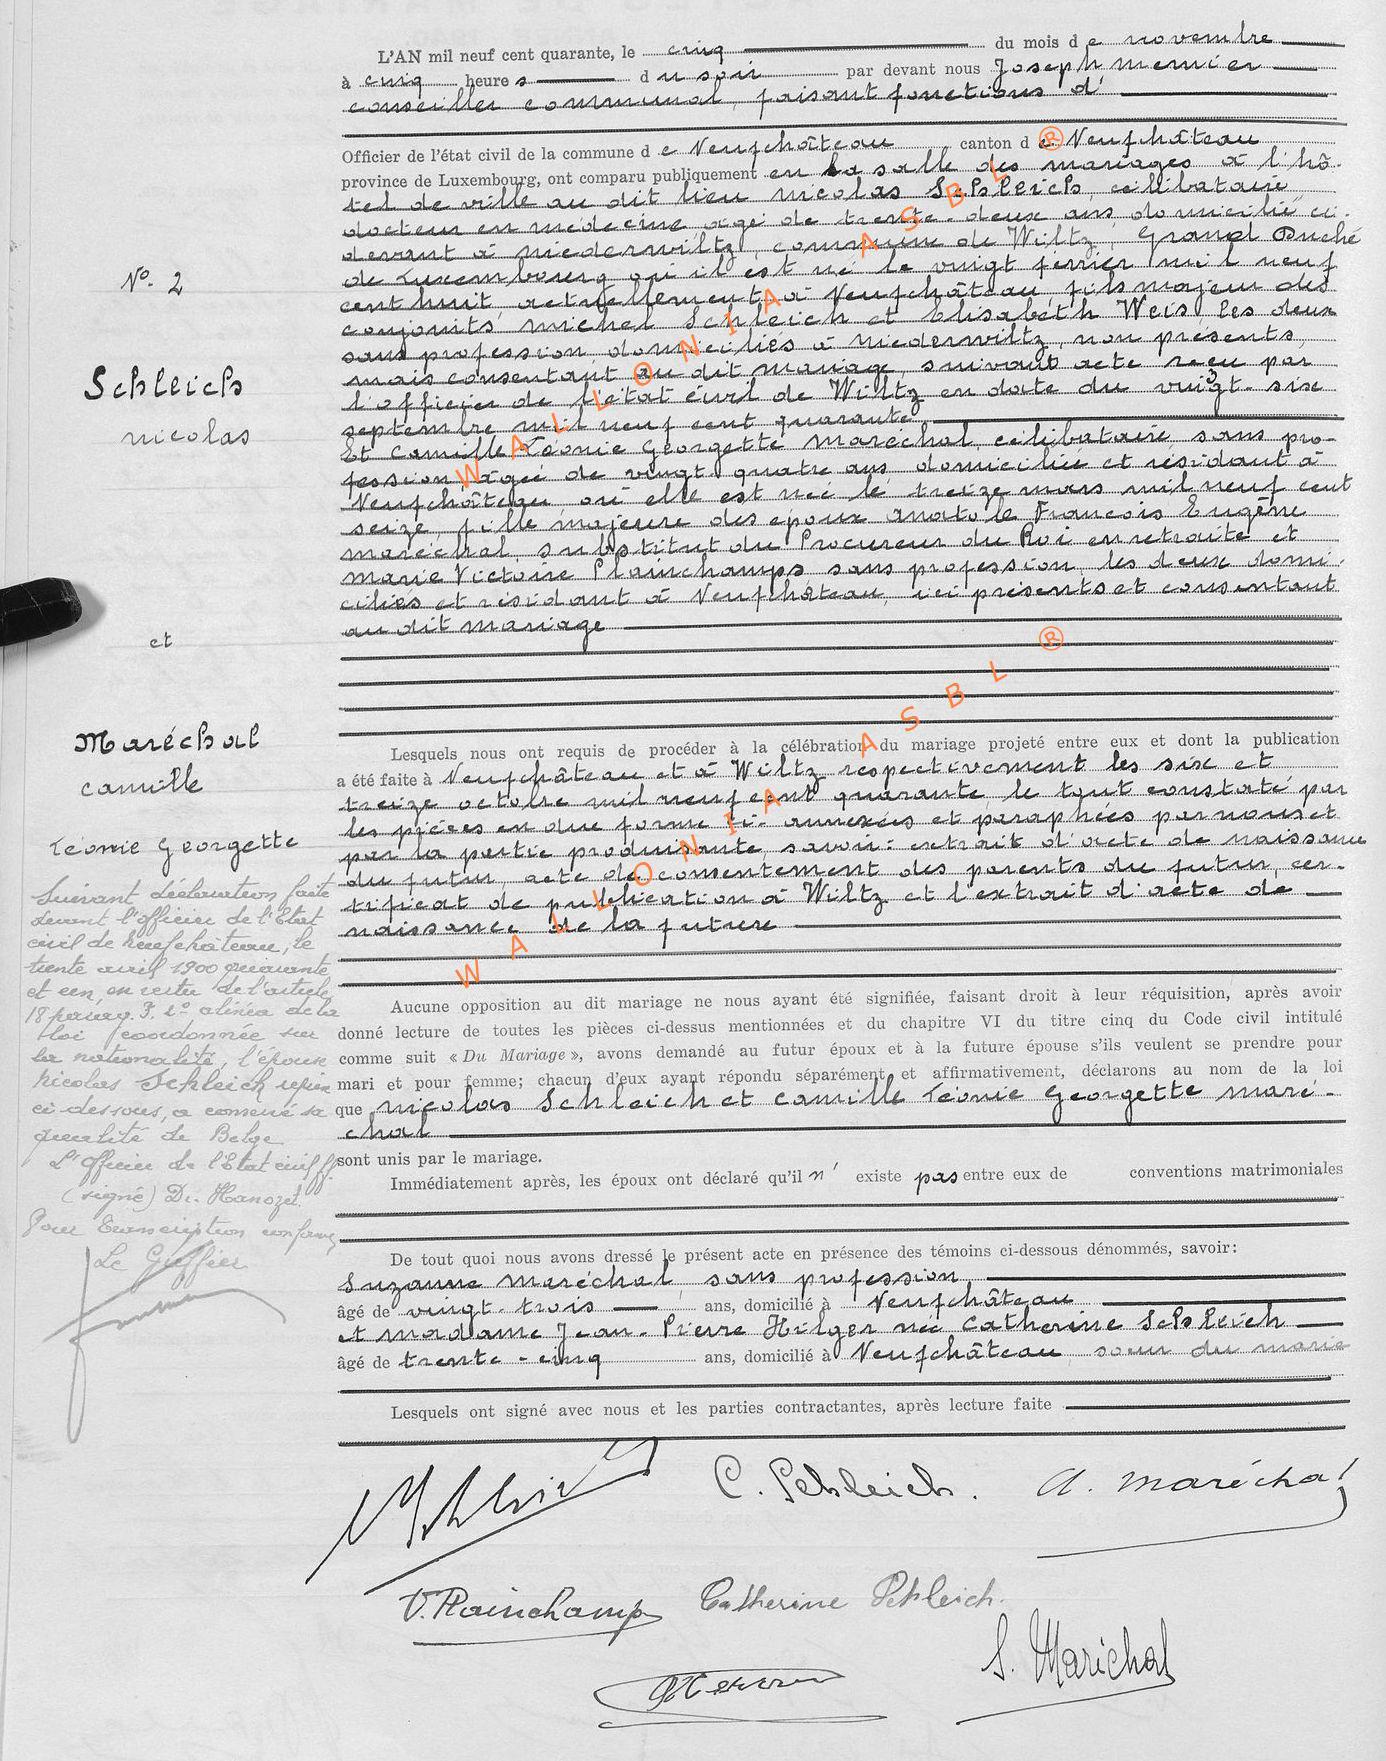 L'AN mil neuf cent quarante, le cinq du mois de novembre
à cinq heures du soir par devant nous Joseph
conseiller communal, faisant fonctions d'
Officier de l'état civil de la commune de Neufchâteau canton de Neufchâteau
province de Luxembourg, ont comparu publiquement en la salle des mariages à l'hô-
tel de ville au dit lieu Nicolas Schleich, célibataire
docteur en médecine âgé de trente-deux ans domicilié ci-
devant à Niederwiltz, commune de Wiltz, Grand Duché
de Luxembourg où il est né le vingt février mil neuf
cent huit, actuellement à Neufchâteau, fils majeur des
conjoints Michel Schleich et Elisabeth Weis les deux
sans profession, domiciliés à Niederwiltz, non présents,
mais consentant au dit mariage, suivant acte reçu par
l'officier de l'état civil de Wiltz en date du vingt-six
septembre mil neuf cent quarante
Et Camille Léonie Georgette Maréchal, célibataire sans pro-
fession âgée de vingt-quatre ans domiciliée et résidant à
Neufchâteau où elle est née le treize mars mil neuf cent
seize, fille majeure des époux Anatole François Eugène
Maréchal substitut du Procureur du Roi en retraite et
Marie Victoire Plainchamps sans profession, les deux domi-
ciliés et résidant à Neufchâteau, ici présents et consentant
au dit mariage
Lesquels nous ont requis de procéder à la célébration du mariage projeté entre eux et dont la publication
a été faite à Neufchâteau et à Wiltz respectivement les six et
treize octobre mil neuf cent quarante, le tout constaté par
les pièces en due forme ci-annexées et paraphées par nous et
par la partie produisante savoir: extrait d'acte de naissance
du futur, acte de consentement des parents du futur, cer-
tificat de publication à Wiltz et l'extrait d'acte de
naissance de la future
Aucune opposition au dit mariage ne nous ayant été signifiée, faisant droit à leur réquisition, après avoir
donné lecture de toutes les pièces ci-dessus mentionnées et du chapitre VI du titre cinq du Code civil intitulé
comme suit « Du Mariage », avons demandé au futur époux et à la future épouse s'ils veulent se prendre pour
mari et pour femme; chacun d'eux ayant répondu séparément et affirmativement, déclarons au nom de la loi
que Nicolas Schleich et Camille Léonie Georgette Maré-
chal
sont unis par le mariage.
Immédiatement après, les époux ont déclaré qu'il n' existe pas entre eux de conventions matrimoniales
De tout quoi nous avons dressé le présent acte en présence des témoins ci-dessous dénommés, savoir:
Suzanne Maréchal, sans profession
âgé de vingt-trois ans, domicilié à Neufchâteau
et madame Jean-Pierre Hilger née Catherine Schleich
âgé de trente-cinq ans, domicilié à Neufchâteau, soeur du marié
Lesquels ont signé avec nous et les parties contractantes, après lecture faite
C. Schleich. A. Maréchal
V. Plainchamps Catherine Schleich.
S. Maréchal
No. 2
Schleich
Nicolas
et
Maréchal
Camille
Léonie Georgette
Suivant déclaration faite
devant l'officier de l'Etat
civil de Neufchâteau, le
trente avril 1900 quarante
et un, en vertu de l'article
18 parag. 2° alinéa de la
loi coordonnée sur
la nationalité, l'épouse
Nicolas Schleich
ci-dessous, a conservé sa
qualité de Belge
L'Officier de l'Etat civil ff.
(signé) Dr. Hanozet
Pour transcription conforme
Le Greffier
WALLONIA ASBL ®
WALLONIA ASBL ®